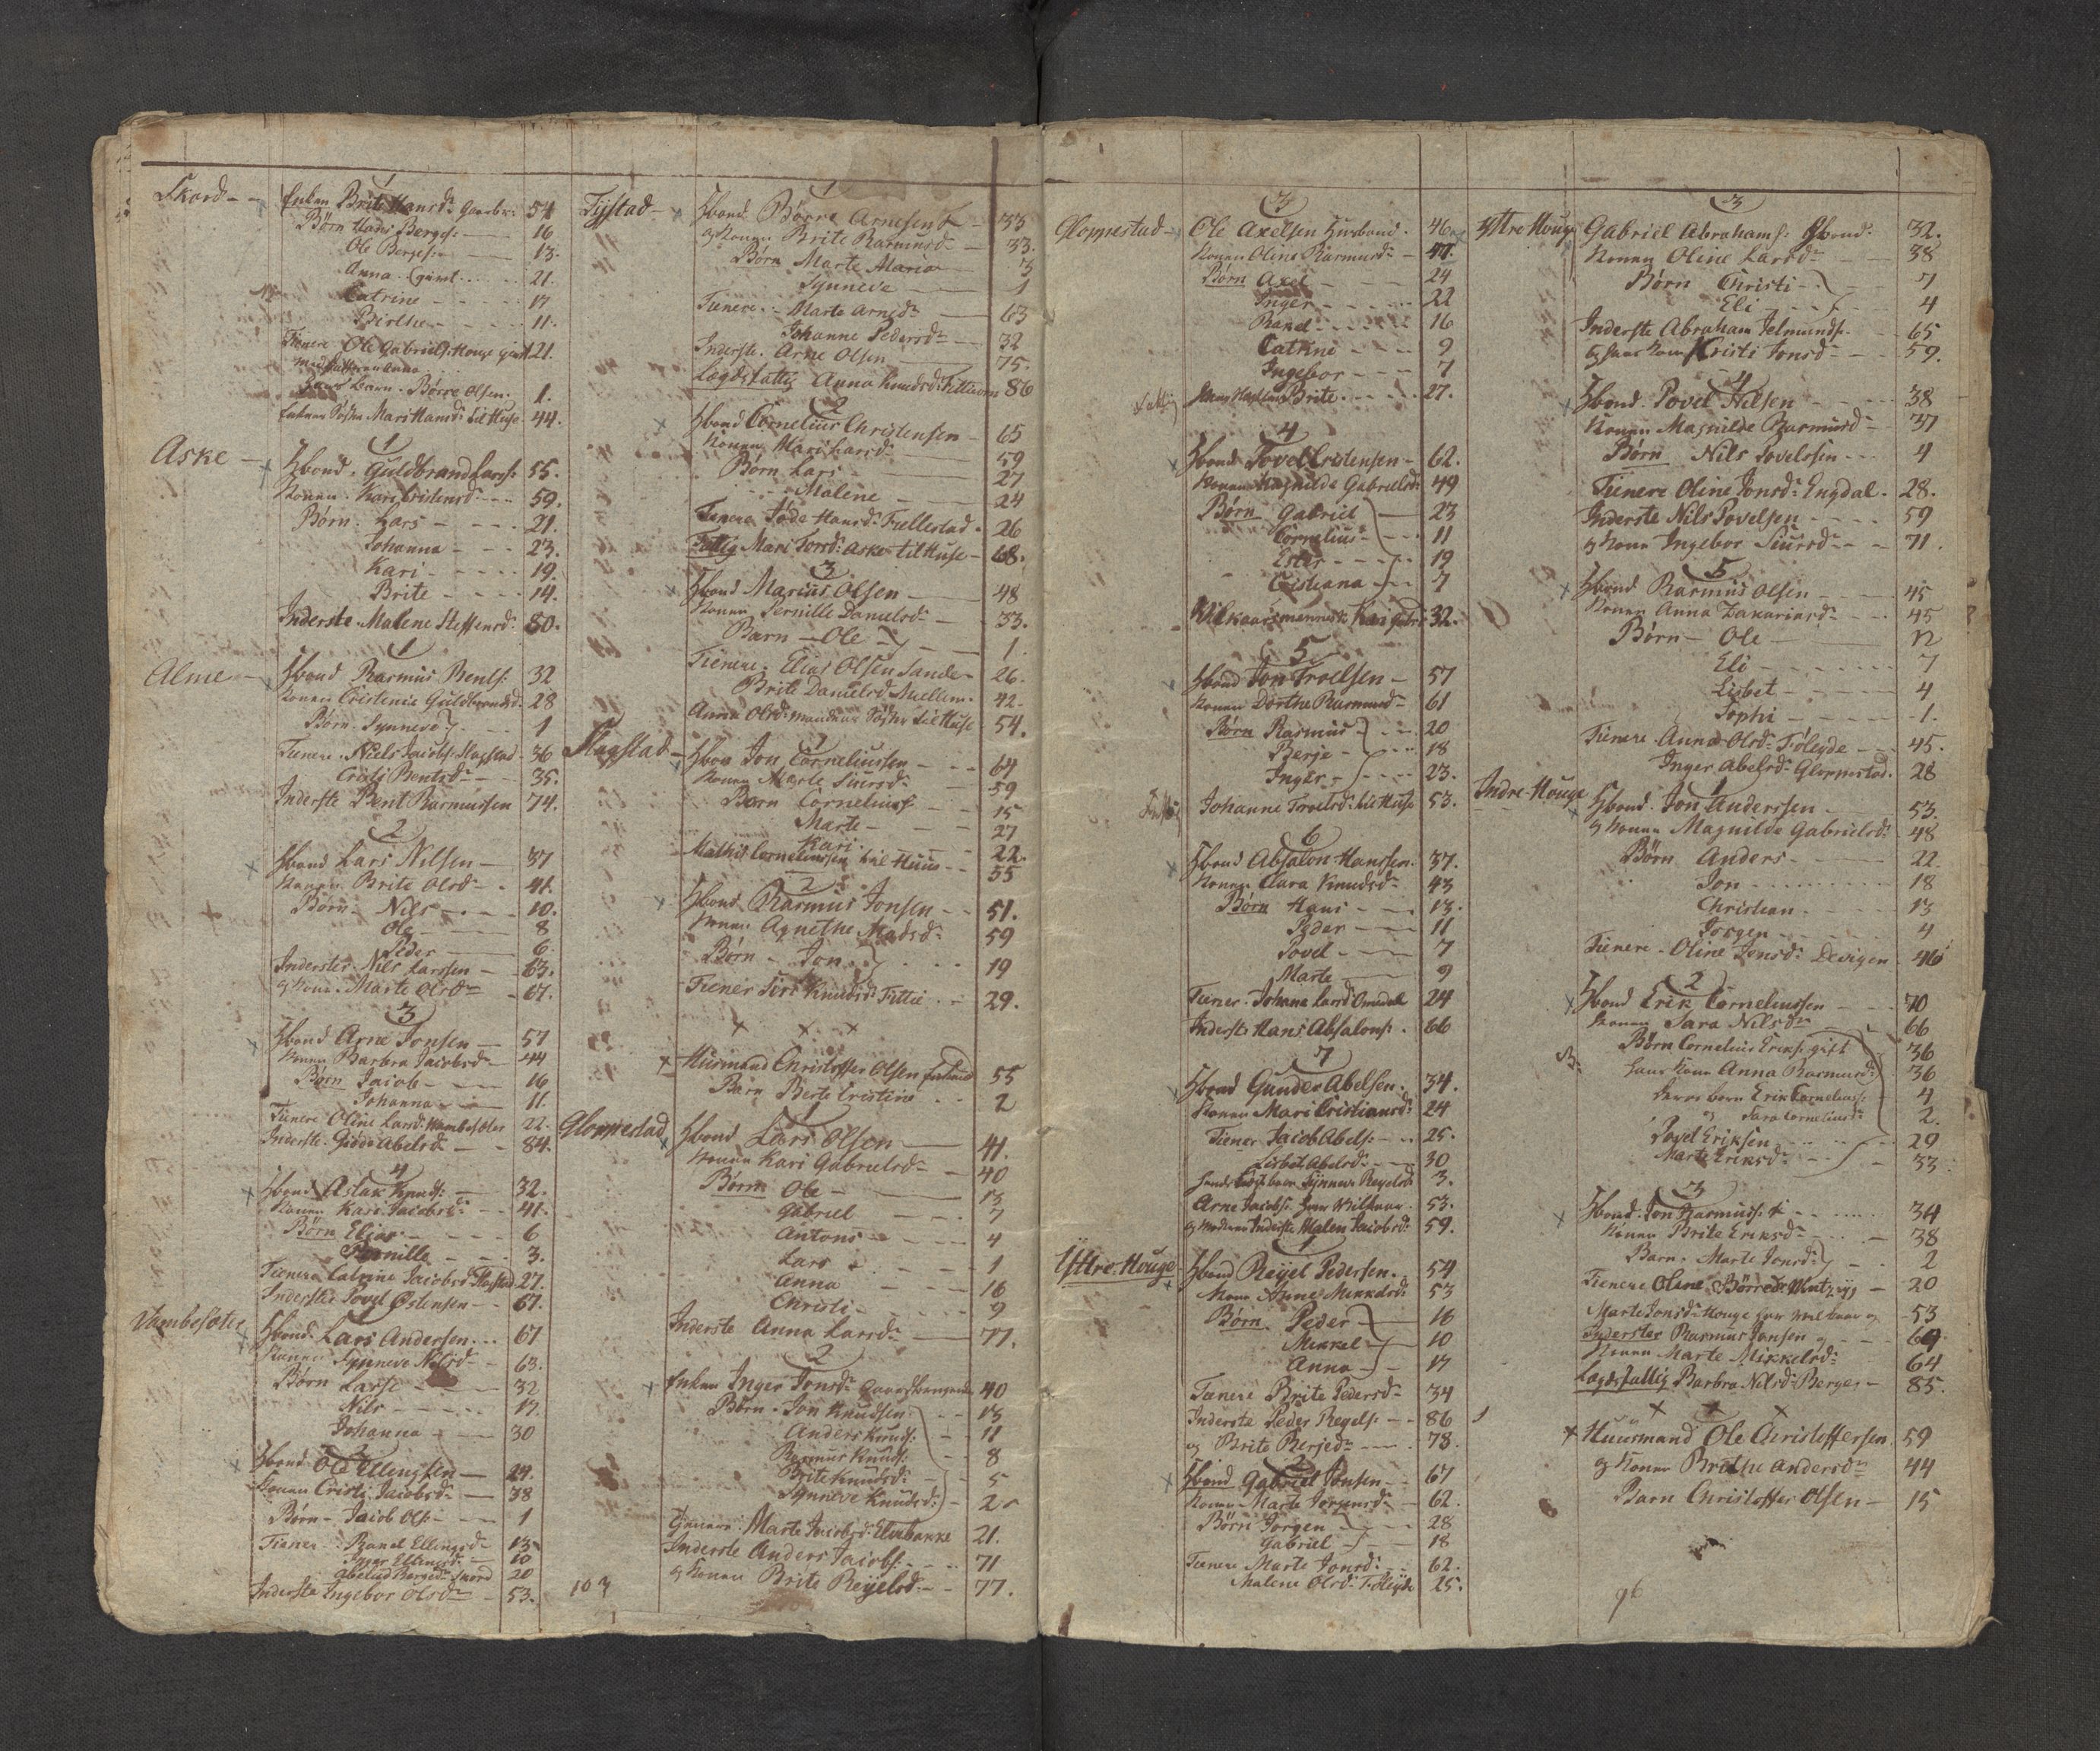 Skord
1
Enken Brite Hansdr 54
Børn Hans Bergs: 16
Ole Bergs: 13.
Anna 21.
Catrine 17
Birthe 11.
Tienere Ole Gabriels: Houge 21.
Barn Børre Olsen. 1.
Mari Hansd: til Huse 44.
Aske
1
Hbond. Guldbrand Larss: 55.
Konen. Kari 59.
Børn. Lars 21.
Johanna 23.
Kari 19.
Brite 14.
Inderste. Malene Steffensd: 80.
Alme
1
Hbond Rasmus Bents: 32
Konen Cristense Guldbrandsd. 28
Børn. Synneve 1
Tienere. Niels Jacobs: 36
Cristi Bentsdr 35.
Inderste Bent Rasmussen 74.
2
Hbond Lars Nilsen 37
Konen Brite Olsdr 41.
Børn. Nils 10.
Ole 8
Peder 6
Inderster Nils Larssen 63.
og Kone. Marte Olsdr 67.
3
Hbond Arne Jonsen 57
Konen Barbra Jacobsdr 44
Børn Jacob 16
Johanna 11.
Tienere Oline Larsd: 22.
Inderste. Abelsdr 84.
4
Hbond Aslak Knuds: 32.
Konen Kari Jacobsdr 41.
Børn Elias 6
Pernille 3.
Tienere Catrine Jacobsd 27.
Inderster Povel Østensen 67.
1
Hbond. Lars Andersen 67
Konen Synneve Nilsdr 63.
Børn Larse 32
Nils 17.
Johanna 30
2
Hbond. Ole Ellingsen 29.
Konen Cristi Jacobsdr 38
Børn Jacob Ols: 1
Tiener Randi Ellingsdr 13
Inger Ellingsd: 10
Skord 20
Inderste Ingebor Olsdr 53.
103
Tystad
1
Hbond. Børre Arnesen 33
og Konen Brite Rasmusdr 33.
Børn Marte Maria 3
Synneve 1
Tienere Marte Arnedr 63
Johanne Pedersdr 32
Inderste. Arne Olsen 75.
Lægdsfattig Anna Knudsd: 86
2
Hbond Cornelius Christensen 65
Konen Mari Larsdr 59
Børn Lars 27
Malene 24
Tienere Hansd: Fellestad. 26
Fattig Mari Torsd: Aske til Huse 68.
3
Hbond Marius Olsen 48
Konen Pernille Danielsdr 33.
Barn Ole 1.
Tienere. Elias Olsen Sande 26.
Brite Danielsd 42.
Anna Olsd: mandens Søster til Huse 54.
Slagstad
1
Hbon Jon Corneliussen 64
Konen Marte Siursdr 59
Børn Cornelius 15
Marte 27
Kari. 22.
Mathis Corneliussen til Huus 55
2
Hbond Rasmus Jonsen 51.
Konen Agnethe Madsdr 59
Børn Jon 19
Tiener Siri Knudsd: 29.
× × ×
Huusmand Christoffer Olsen 55
Barn Berte Cristine 2
Gloppestad
1
Hbond Lars Olsen 41.
Konen Kari Gabrielsdr 40
Børn Ole 13
Gabriel 7
Antons 4
Lars 1
Anna 16
Christi 9
Inderste Anna Larsdr 77.
2
Enken Inger Jonsdr 40
Børn. Jon Knudsen 13
Anders Knuds: 11
Rasmus Knuds: 8
Brite Knudsdr 5
Synneve Knudsd: 2
Tienere. Marte Jacobsd: 21.
Inderste Anders Jacobs: 71
og Konen Brite Reyelsdr 77.
Gloppestad
3
Ole Axelsen Husbond. 46
Konen Oline Rasmusdr 47.
Børn Axel 24
Inger 22
Randi 16
Catrine 9
Ingebor 7
Brite 27.
4
Hbond Povel Cristensen 62.
Konen Magnilde Gabrielsdr 49
Børn Gabriel 23
Cornelius 11
Ester 19
Cistiana 7
Vilkaarsmenneske Kari 32.
5
Hbond Jon Troelsen 57
Konen Dorthe Rasmusdr 61
Børn Rasmus 20
Berje 18
Inger 23.
Johanne Troelsd: til Huse 53.
6
Hbond Absalon Hanssen. 37.
Konen Clara Knudsdr 43
Børn Hans 13.
Peder 11
Povel 7
Marte 9
Tiener. Johana Larsd 24
Inderste Hans Absalons: 66
7
Hbond Gunder Abelsen. 34.
Konen Mari Cristiansdr 24
Tiener Jacob Abels: 25.
Lisbet Abelsdr 30
Synneve 3.
Arne Jacobs: 53.
Inderste Malen Jacobsdr 59.
Yttre Houge
1
Hbond Reyel Pedersen. 54
Kone Anne Mikkelsdr 53
Børn. Peder 16
Mikkel 10
Anna 17
Tienere Brite Pedersdr 34
Inderste Peder Regels: 86
og Brite Berjedr 78.
2
Hbond Gabriel Jonsen 67
Konen Marte Jorgensdr 62.
Børn Jorgen 28
Gabriel 18
Tienere Marte Jonsdr 62.
Malene Olsd: 25.
Yttre Houge
3
Gabriel Abrahams: Hbond 32.
Konen Oline Larsdr 38
Børn Christi 7
Eli 4
Inderste Abraham 65
og hans Kone Kristi Jonsdr 59.
4
Hbond. Povel Nilsen 38
Konen Magnilde Rasmusdr 37
Børn Nils Povelsen 4
Tienere Oline Jonsd: Engdal. 28.
Inderste Nils Povelsen 59
og Kone Ingebor Siursdr 71.
5
Hbond Rasmus Olsen 45
Konen Anna Zakariasdr 45
Børn Ole 12
Eli 7
Lisbet 4
Sophi 1.
Tienere Anna Olsdr 45.
Inger Abelsdr Gloppestad. 28
Indre Houge
1
Hbond. Jon Anderssen 53.
og Konen Magnilde Gabrielsdr 48
Børn Anders 22.
Jon 18
Christian 13
Jorgen 4
Tienere. Oline Jonsdr 46
2
Hbond Erik Corneliussen 70
Konen Sara Nilsdr 66
Børn Cornelius Eriks: gift 36
hans Kone Anna Rasmusdr 36
deres børn Erik Cornelius: 4
og Sara Corneliusdr 2.
Povel Eriksen 29
Marte Eriksdr 33
3
Hbond. Jon Rasmuss: 34
Konen Brite Eriksdr 38
Barn. Marte Jonsdr 2
Tienere Oline 20
Marte Jonsdr Houge 53
Inderster Rasmus Jonsen og 69
Konen Marte Mikkelsdr 64
Lægdsfattig Barbra Nilsdr 85.
× × ×
Huusmand Ole Christoffersen 59
og Konen Brithe Andersdr 44
Barn Christoffer Olsen 15
96